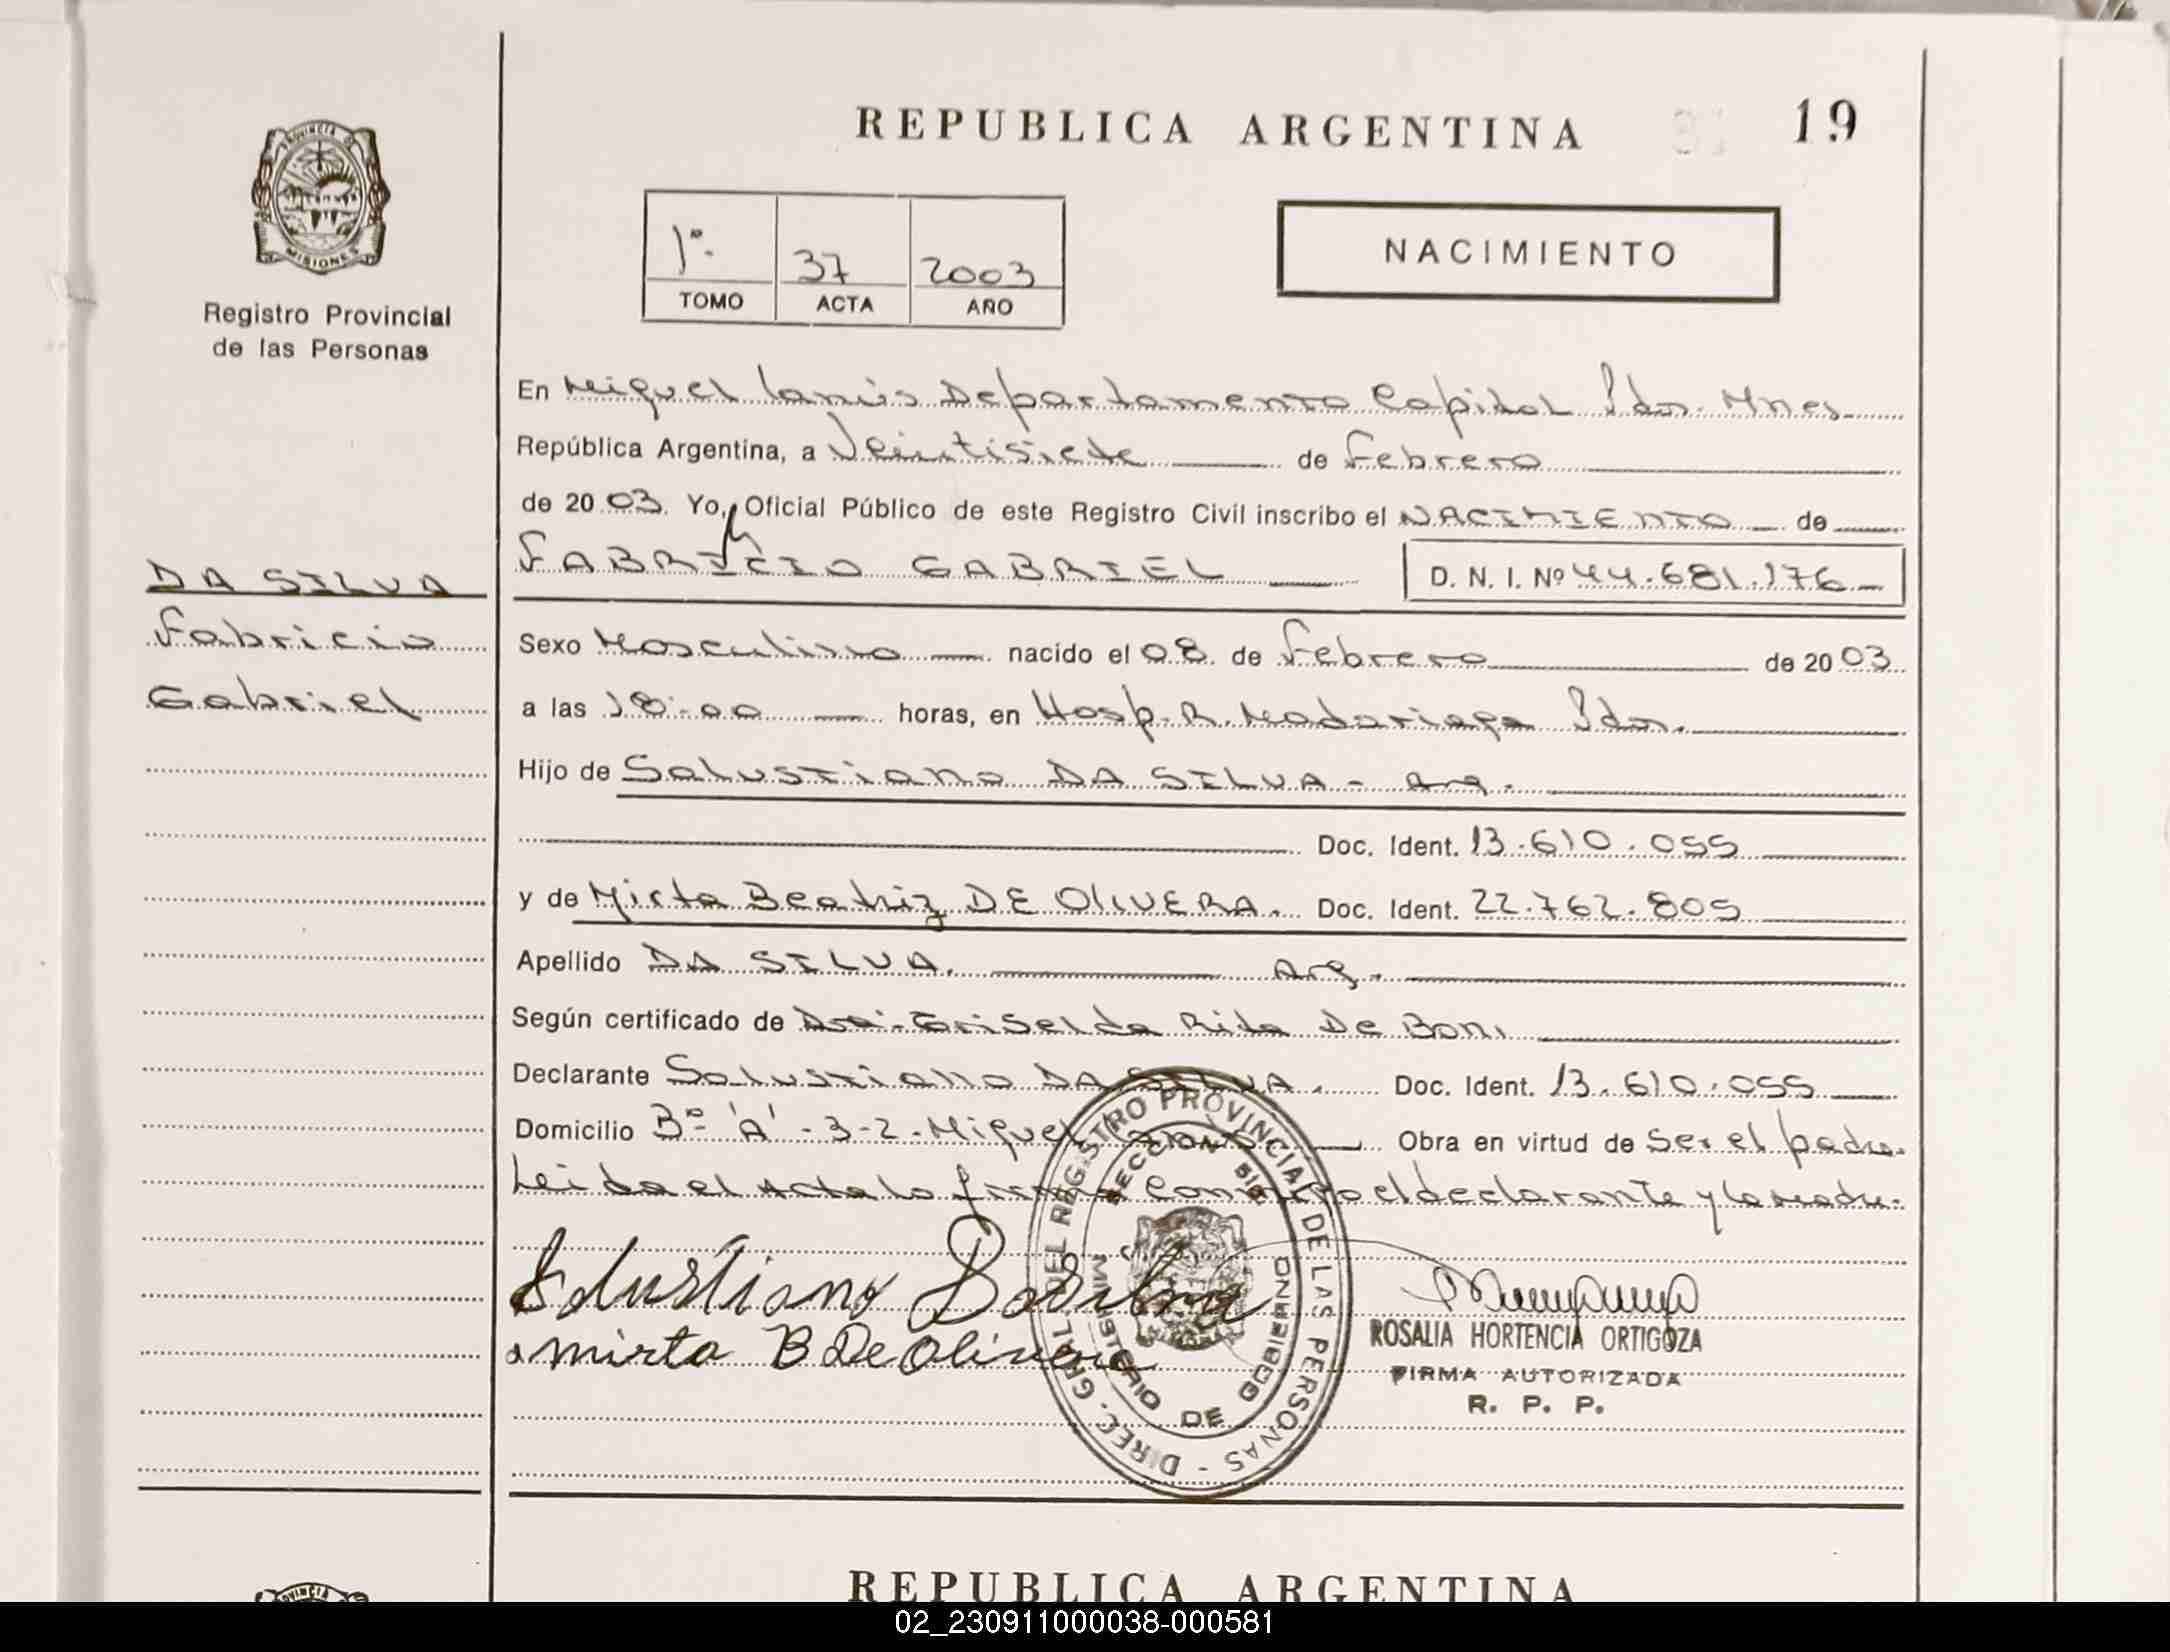 REPUBLICA ARGENTINA
19
PROVINCIA DE
MISIONES
Registro Provincial
de las Personas
1º.
37
2003
TOMO
ACTA
AÑO
NACIMIENTO
En Miguel Lanús Departamento Capital Pdas. Mnes.
República Argentina, a Veintisiete de Febrero
de 2003. Yo, Oficial Público de este Registro Civil inscribo el NACIMIENTO de
FABRICIO GABRIEL
D. N. I. Nº 44.681.176
DA SILVA
Fabricio
Gabriel
Sexo Masculino nacido el 08 de Febrero de 2003
a las 18:00 horas, en Hosp. R. Madariaga Pdas.
Hijo de Salustiano DA SILVA - arg.
Doc. Ident. 13.610.055
y de Mirta Beatriz DE OLIVERA. Doc. Ident. 22.762.805
Apellido DA SILVA. Arg.
Según certificado de Dra. Griselda Rita De Boni
Declarante Salustiano DA SILVA. Doc. Ident. 13.610.055
Domicilio Bº 'A' - 3-2. Miguel Lanús Obra en virtud de Ser el padre.
Leida el Acta la firma conmigo el declarante y la madre.
Salustiano Da Silva
mirta B De Olivera
DIREC. GRAL. DEL REGISTRO PROVINCIAL DE LAS PERSONAS -
MINISTERIO DE GOBIERNO
ROSALIA HORTENCIA ORTIGOZA
FIRMA AUTORIZADA
R. P. P.
REPUBLICA ARGENTINA
02_230911000038-000581